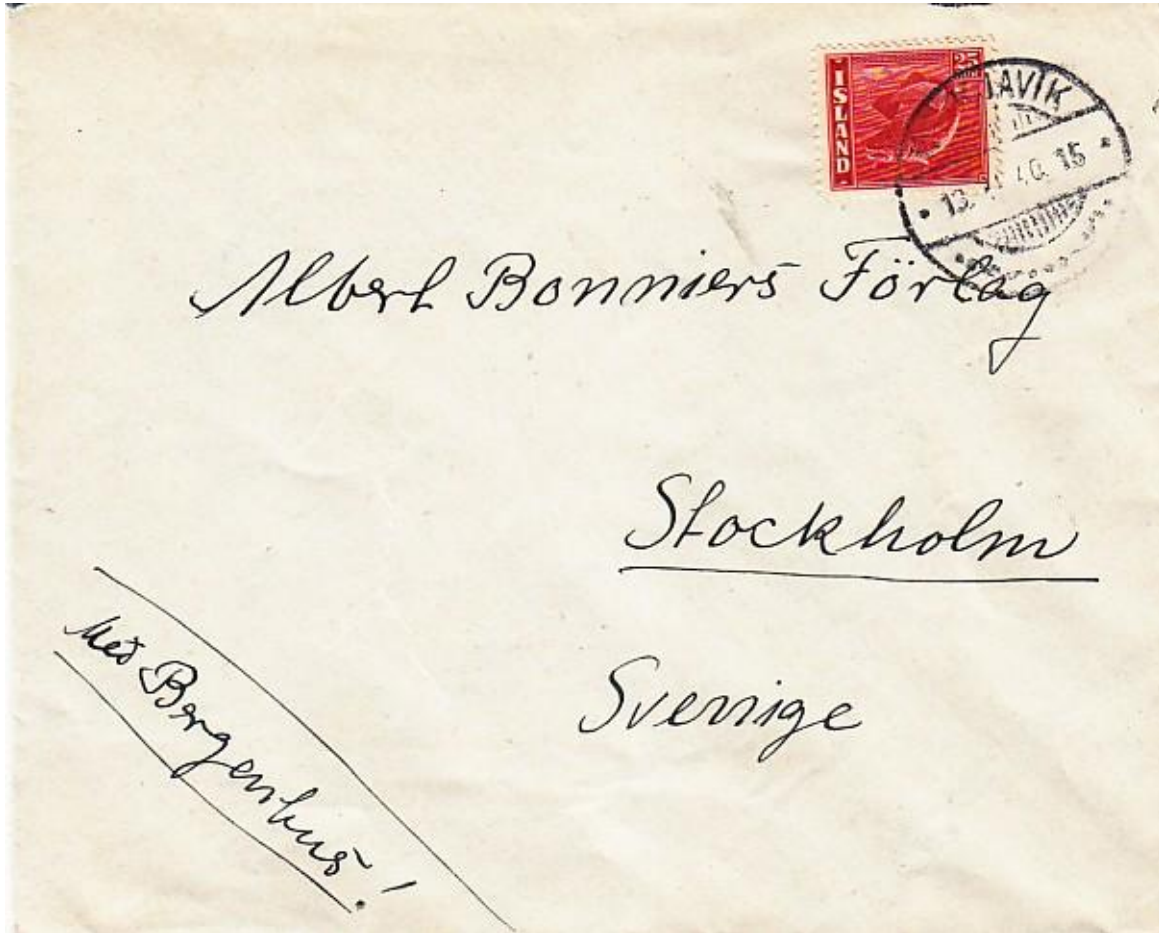 25
ÍSLAND
JAVÍK
40. 15
Albert Bonniers Förlag
Stockholm
Sverige
Með Bergenhus!